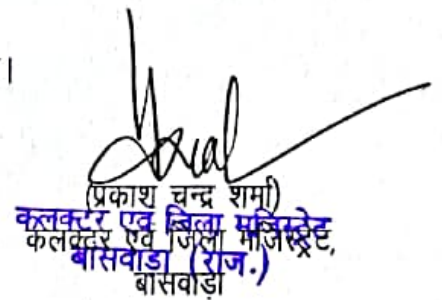 ।
(प्रकाश चन्द्र शर्मा)
कलक्टर एवं जिला मजिस्ट्रेट
कलक्टर एवं जिला मजिस्ट्रेट,
बांसवाड़ा (राज.)
बांसवाड़ा